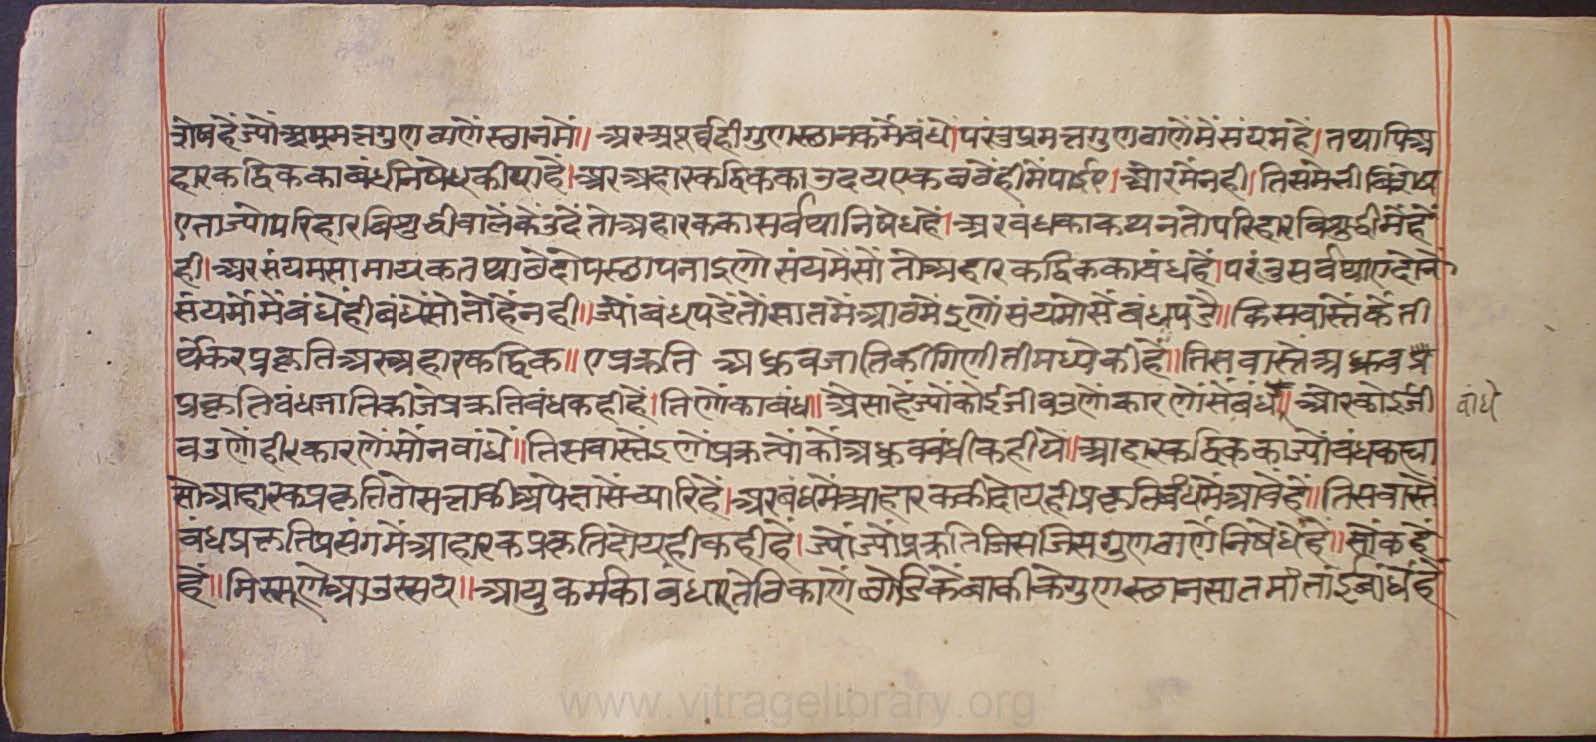 शेषहेंज्यों अप्रमत्तगुणठाणेंस्थानमें॥ अरअपूर्वहीगुणस्थानकमेंबंधें।परंतुप्रमत्तगुणठाणेंमेंसंयमहें।तथापिअ
हारकद्विककाबंधनिषेधकीयाहें।अरअहारकद्विककाउदयएकछठेंहींमेंपाईए।औरमेंनही।तिसमेंभीविशेष
एताज्योपरिहारविशुद्धीवालेंकेंउदेंतोअहारककासर्वथानिषेधहें।अरबंधकाकथनतोपरिहारविशुद्धीमेंहें
ही।अरसंयमसामायकतथाछेदोपस्छापनाइणोसंयमेंसोंतोअहारकद्विककाबंधहें।परंतुसर्वथाएदोनो
संयमोंमेंबंधेंहीबंधेंसोतोहेंनही॥ज्योंबंधपडेतोंसातमेंआठमेंइणोंसंयमोंसेंबंधपडें॥किसवास्तेंकेंती
र्थंकरप्रकृतिअरअहारकद्विक॥एप्रकृति अध्रुवजातिकीगिणीतीमध्येकीहें॥तिसवास्तेंअध्रुवप्र
प्रकृतिबंधजातिकीजेप्रकृतिबंधकहीहें।तिणोंकाबंध॥अैसाहेंज्योंकोईजीवउणोंकारणोंसेंबंधें॥ओरकोईजी बांधे
वउणोंहीरकारणोंसोंनबांधें॥तिसवास्तेंइणोंप्रकृत्योंकोंअध्रुवबंधीकहीयें॥आहारकद्विककाज्योंबंधकह्या
सोआहारकप्रकृतितोसत्ताकीअपेक्षासेंच्यारिहें।अरबंधमेंआहारककीदोयहीप्रकृतिबंधमेंआवेंहें॥तिसवास्तें
बंधप्रकृतिप्रसंगमेंआहारकप्रकृतिदोयहीकहीहें।ज्योंज्योंप्रकृतिजिसजिसगुणठाणेंनिषेधेंहें॥सोंकहें
हें॥मिस्सूणेआउस्सय॥आयुकर्मकाबंध तेविकाणेंछोडिकेंबाकीकेगुणस्छानसातमांतांईबांधेंहें